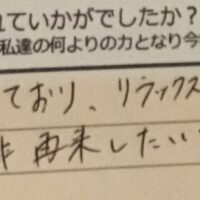 れていかがでしたか？
私達の何よりの力となり今
ており、リラックス
非 再来したい